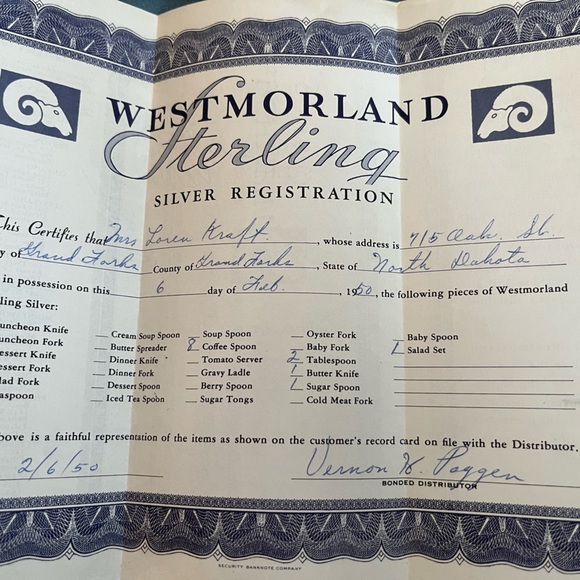 WESTMORLAND
Sterling
SILVER REGISTRATION
This Certifies that Mrs Loren Kraft, whose address is 715 Oak. St.
y of Grand Forks County of Grand Forks, State of North Dakota
in possession on this 6 day of Feb., 1950, the following pieces of Westmorland
ling Silver:
uncheon Knife
uncheon Fork
essert Knife
essert Fork
lad Fork
aspoon
Cream Soup Spoon
Butter Spreader
Dinner Knife
Dinner Fork
Dessert Spoon
Iced Tea Spoon
Soup Spoon
8 Coffee Spoon
Tomato Server
Gravy Ladle
Berry Spoon
Sugar Tongs
Oyster Fork
Baby Fork
2 Tablespoon
1 Butter Knife
1 Sugar Spoon
Cold Meat Fork
Baby Spoon
1 Salad Set
bove is a faithful representation of the items as shown on the customer's record card on file with the Distributor.
2/6/50 Vernon H. Poggen
BONDED DISTRIBUTOR
SECURITY BANKNOTE COMPANY